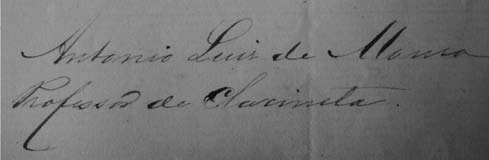 Antonio Luiz de Moura
Professor de Clarineta.